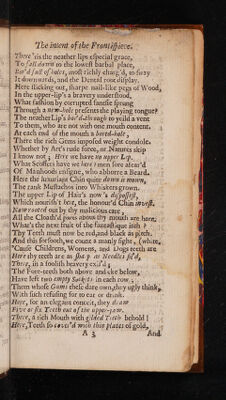 The intent of the Frontispiece.
There 'tis the neather lips especial grace,
To fall down to the lowest barbal place,
Bor'd full of holes, most richly chang'd, to suzy
It downwards, and the Dental root display.
Here sticking out, sharpe nail-like pegs of Wood,
In the upper-lip's a bravery understood.
What fashion by corrupted sansse sprung
Through a new-hole presents the playing tongue?
The neatherLip's bor'd-through to yeild a vent
To them, who are not with one mouth content.
At each end of the mouth a bored-hole,
There the rich Gems imposed weight condole.
Whether by Art's rude force, or Natures slip
I know not; Here we have no upper Lip.
What Scoffers have we here? men sore afear'd
Of Manhoods ensigne, who abhorre a Beard.
Here the luxuriant Chin quite down is mown,
The rank Mustachos into Whiskers grown.
The upper Lip of Hair's now a dispossest,
Which nourish't be, the honour'd Chin invest.
Now rooted out by thy malicious care,
All the Cloath'd pores about thy mouth are bare.
What's the next fruit of the fantastique itch?
Thy Teeth must now be red, and black as pitch.
And this forsooth, we count a manly sight, (white.
'Cause Childrens, Womens, and Dogs teeth are
Here thy teeth are as sharp as Needles fil'd,
These, in a foolish bravery exil'd;
The Fore-teeth both above and eke below,
Have left two empty Sockets in each row;
Them whose Gums these dare own, they ugly think,
With such refusing for to eat or drink.
Here, for an elegant conceit, they draw
Five or six Teeth out of the upper-jaw.
There, a rich Mouth with gilded Teeth behold!
Here, Teeth so cover'd with thin plates of gold,
A 3 And